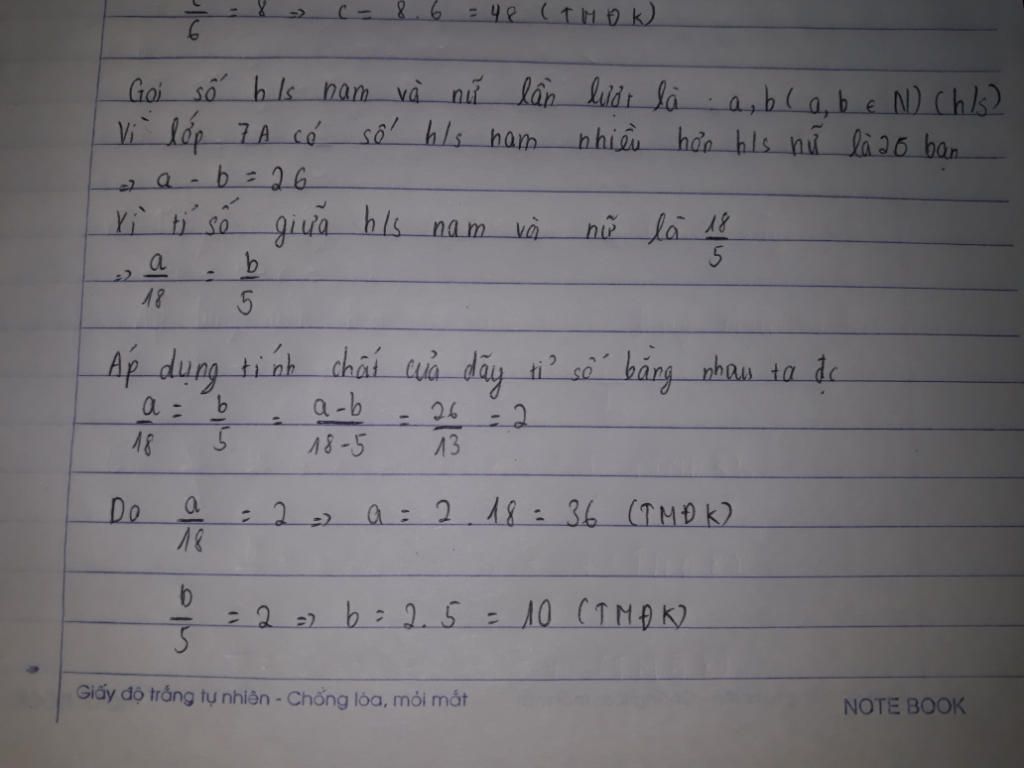 c/6 = 8 => c = 8.6 = 48 (TMĐK)
Gọi số h/s nam và nữ lần lượt là : a, b (a, b ∈ N) (h/s)
Vì lớp 7A có số h/s nam nhiều hơn h/s nữ là 26 bạn
=> a - b = 26
Vì tỉ số giữa h/s nam và nữ là 18/5
=> a/18 = b/5
Áp dụng tính chất của dãy tỉ số bằng nhau ta đc
a/18 = b/5 = a-b/18-5 = 26/13 = 2
Do a/18 = 2 => a = 2.18 = 36 (TMĐK)
b/5 = 2 => b = 2.5 = 10 (TMĐK)
Giấy độ trắng tự nhiên - Chống lóa, mỏi mắt
NOTE BOOK